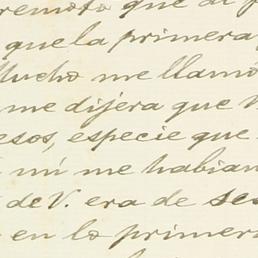 remoto que al
que la primera
Mucho me llamó
me dijera que
esos, especie que
mi me habian
de V. era de ses
en la primera